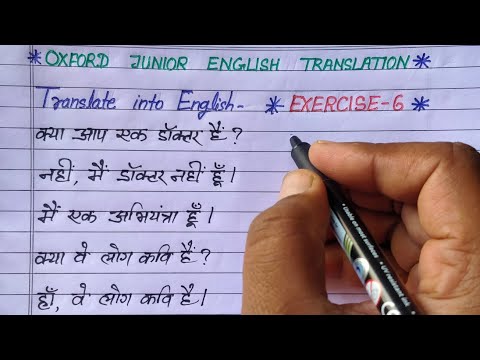 *OXFORD JUNIOR ENGLISH TRANSLATION*
Translate into English- *EXERCISE-6*
क्या आप एक डॉक्टर हैं?
नहीं, मैं डॉक्टर नहीं हूँ।
मैं एक अभियंत्रा हूँ।
क्या वे लोग कवि हैं?
हाँ, वे लोग कवि हैं।